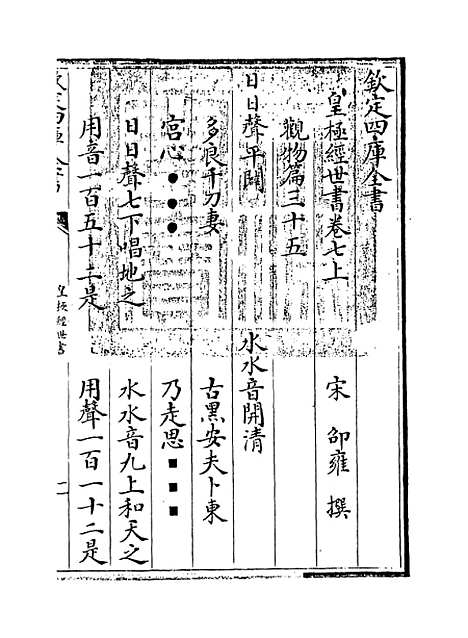 欽定四庫全書
皇極經世書卷七上
宋 邵雍 撰
觀物篇三十五
日日聲平闢 水水音開清
多良千刀妻 古黑安夫卜東
宮心●●● 乃走思■■■
日日聲七下唱地之 水水音九上和天之
用音一百五十二是 用聲一百一十二是
皇極經世書